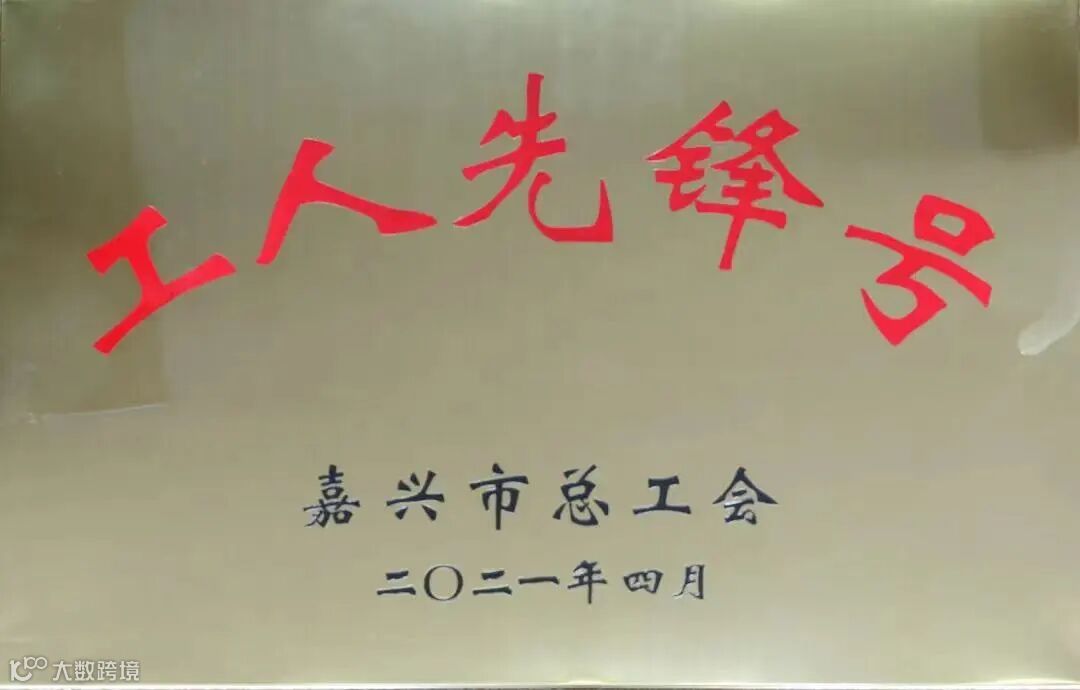 工人先锋号
嘉兴市总工会
二〇二一年四月
大数跨境